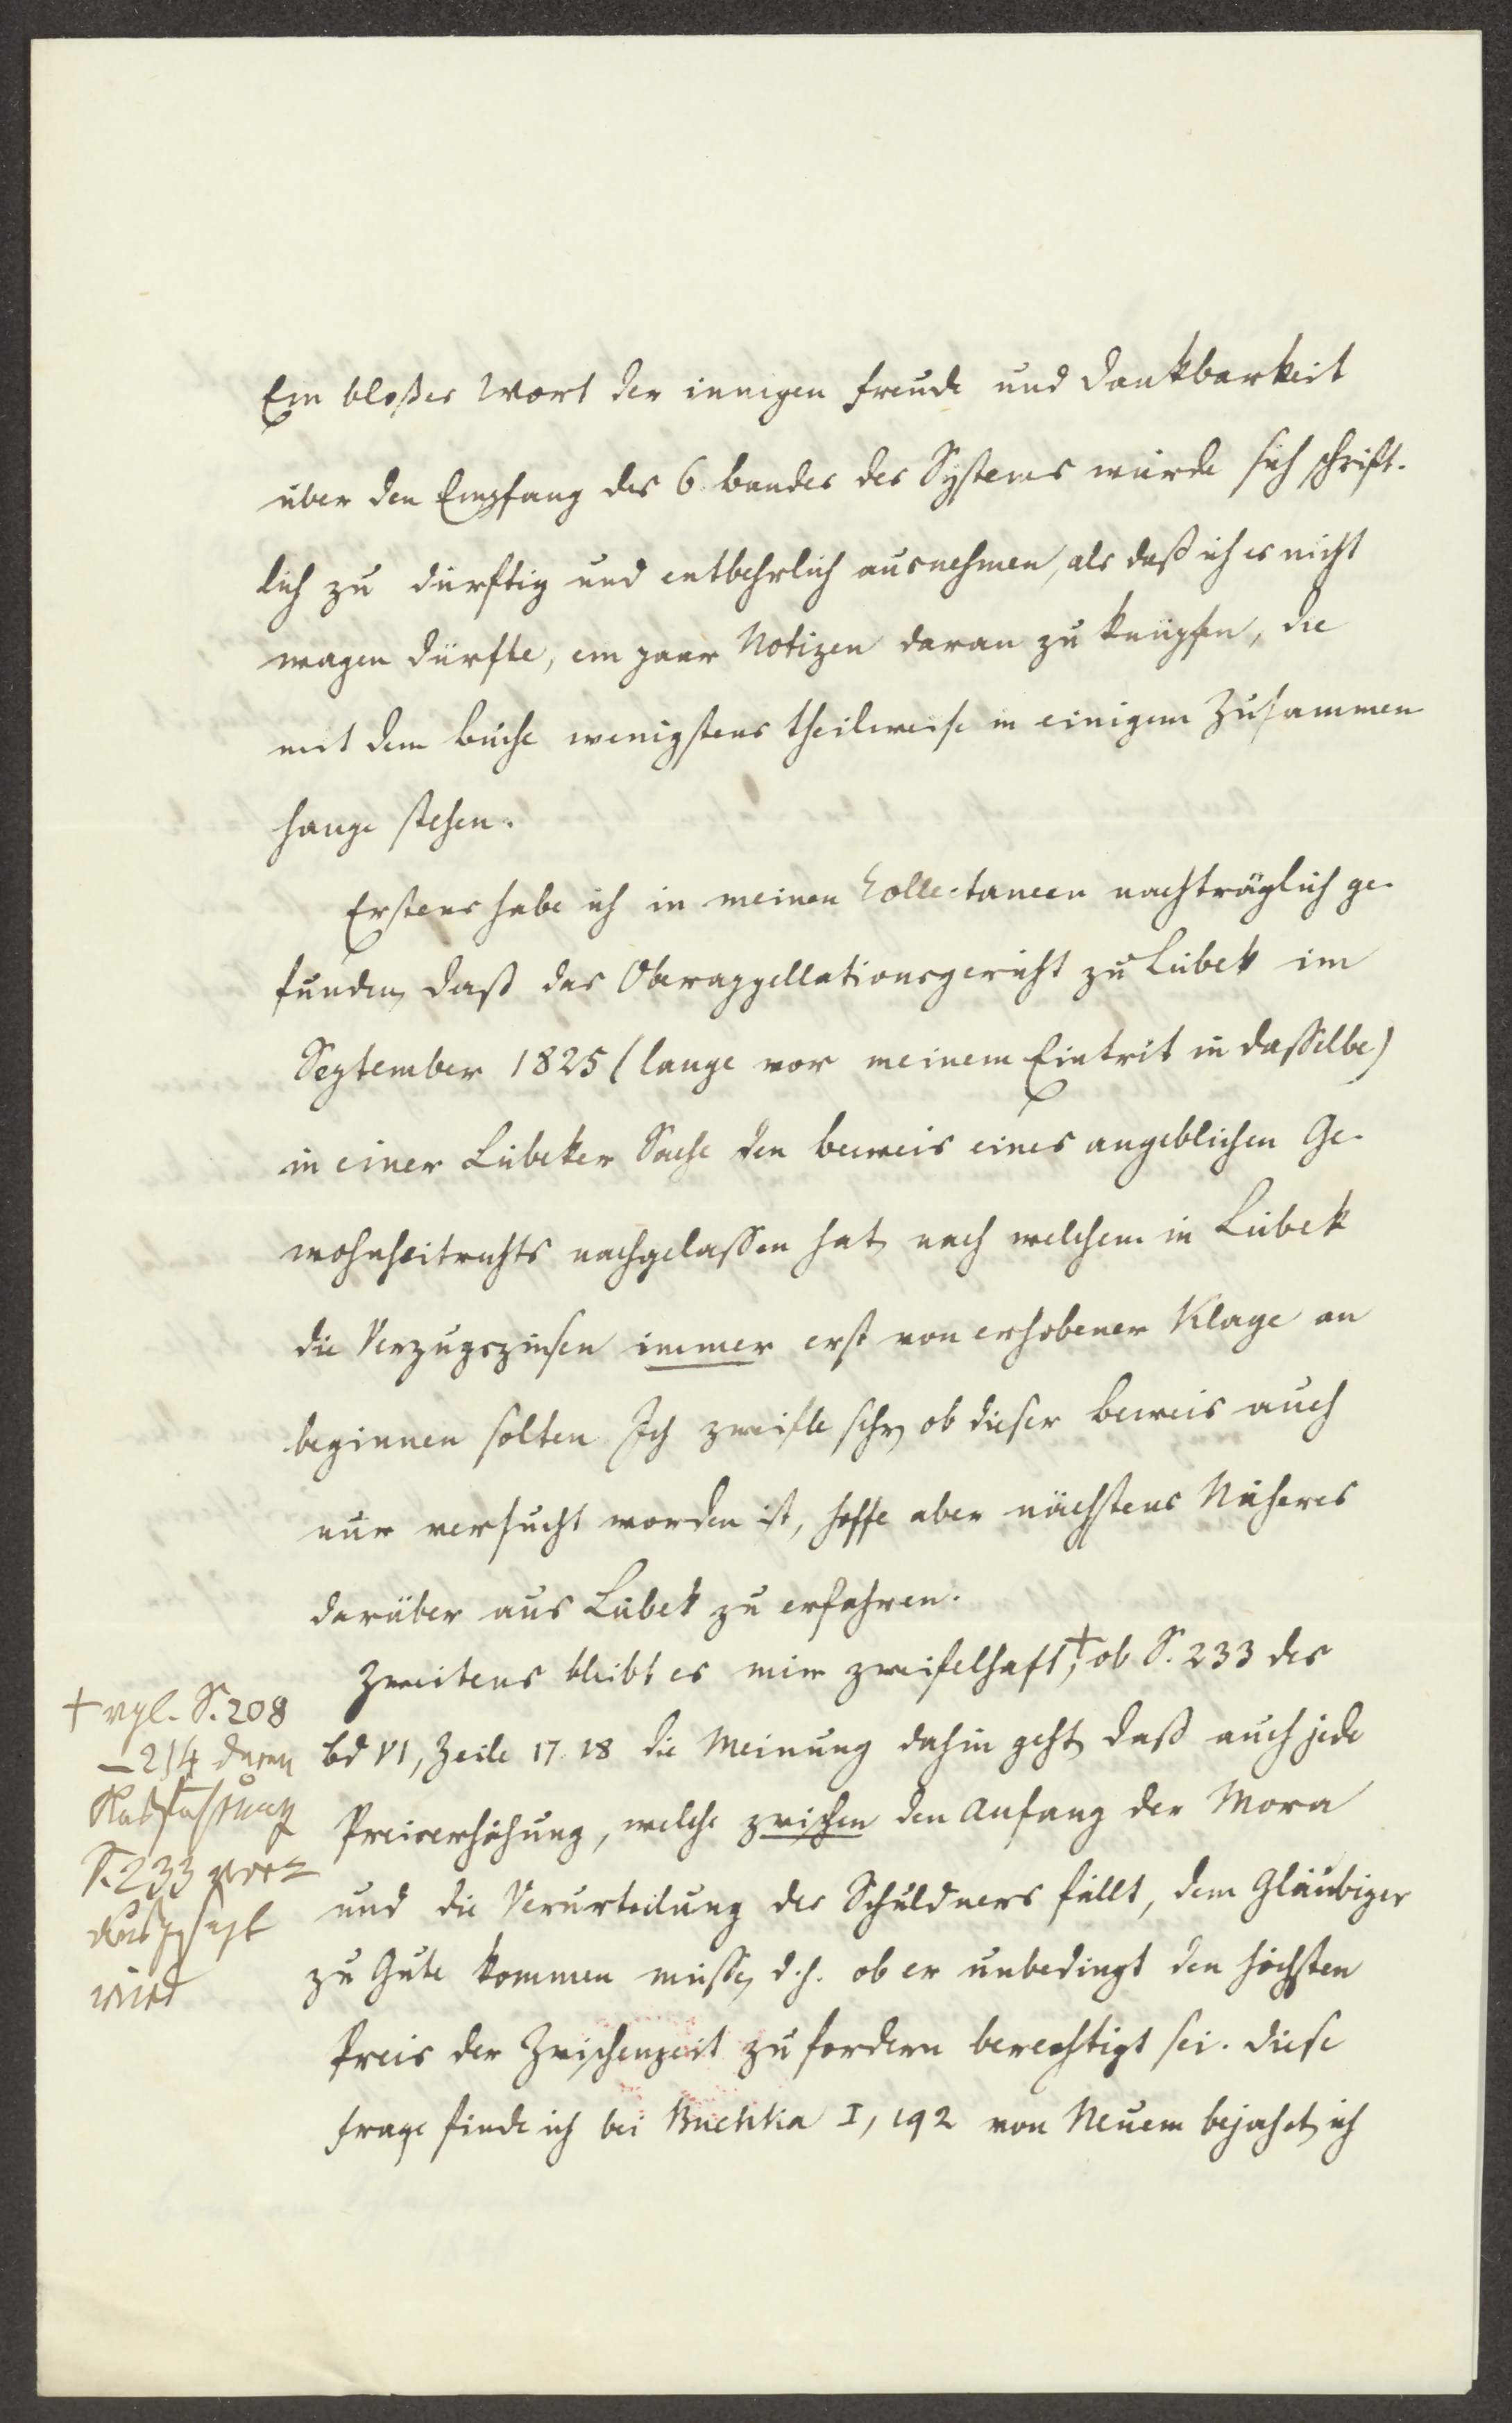 Ein bloßes Wort der innigen Freude und Dankbarkeit
über den Empfang des 6. Bandes des Systems würde sich schrift-
lich zu dürftig und entbehrlich ausnehmen, als daß ich es nicht
wagen dürfte, ein paar Notizen daran zu knüpfen, die
mit dem Buche wenigstens theilweise in einigem Zusammen
hange stehen.
Erstens habe ich in meinen Collectaneen nachträglich ge-
funden, daß das Oberappellationsgericht zu Lübek im
September 1825 (lange vor meinem Eintrit in dasselbe)
in einer Lübeker Sache den Beweis eines angeblichen Ge-
wohnheitrechts nachgelassen hat, nach welchem in Lübek
die Verzugszinsen immer erst von erhobener Klage an
beginnen solten. Ich zweifle sehr, ob dieser Beweis auch
nur versucht worden ist, hoffe aber nächstens Näheres
darüber aus Lübek zu erfahren.
Zweitens bleibt es mir zweifelhaft,+ ob S. 233 des
Bd VI, Zeile 17. 18 die Meinung dahin geht, daß auch jede
Preiserhöhung, welche zwischen den Anfang der Mora
und die Verurteilung des Schuldners fällt, dem Gläubiger
zu Gute kommen müsse, d. h. ob er unbedingt den höchsten
Preis der Zwischenzeit zu fordern berechtigt sei. Diese
Frage finde ich bei Buchka I, 192 von Neuem bejahet, ich
+ vgl. S. 208
– 214 deren
S. 233 vor=
ausgesezt
wird